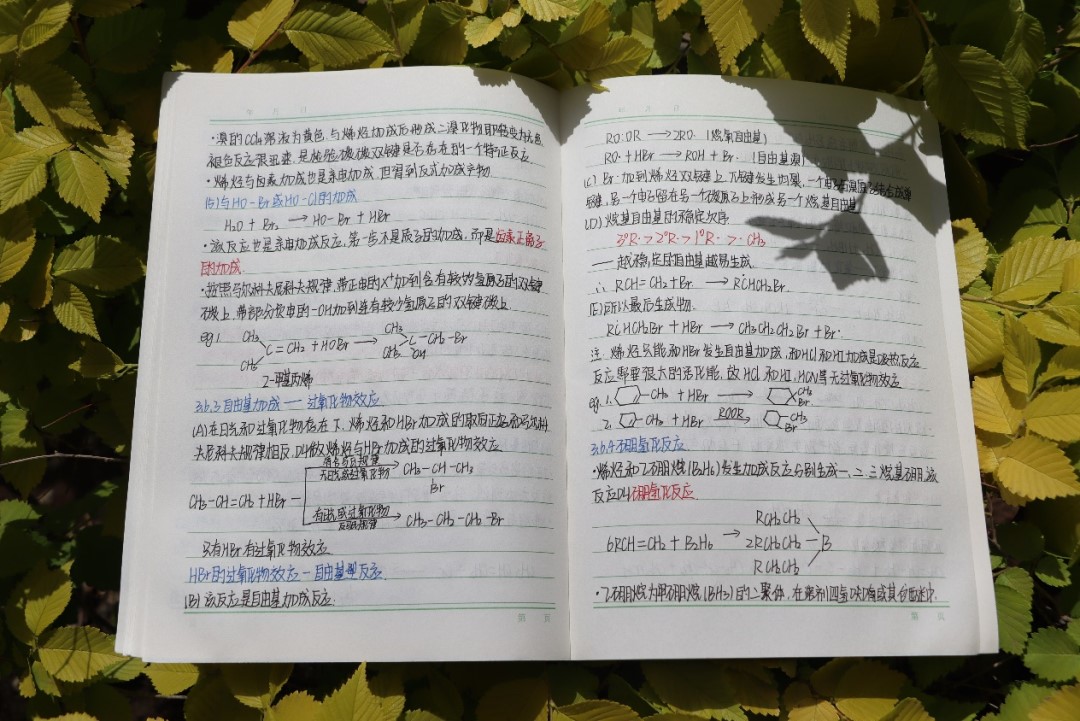 年 月 日
·溴的CCl4溶液为黄色,与烯烃加成后形成二溴化物即转变为无色
褪色反应很迅速,是检验碳碳双键是否存在的一个特征反应.
·烯烃与卤素加成也是亲电加成,但得到反式加成产物
(5)与HO-Br或HO-Cl的加成
H2O + Br2 → HO-Br + HBr
·该反应也是亲电加成反应,第一步不是质子的加成,而是卤素正离子
的加成.
·按照马尔科夫尼科夫规律,带正电的X+加到含有较多氢原子的双键
碳上,带部分负电的-OH加到连有较少氢原子的双键碳上
eg1. CH3 CH3 C=CH2 + HOBr → CH3 CH3 C-CH2-Br OH
2-甲基丙烯
3.6.3 自由基加成 — 过氧化物效应
(A)在日光和过氧化物存在下,烯烃和HBr加成的取向正好和马尔科
夫尼科夫规律相反,叫做烯烃与HBr加成的过氧化物效应
无光或过氧化物 CH3-CH-CH3
Br
CH3-CH=CH2 + HBr
有光或过氧化物 CH3-CH2-CH2-Br
反马规律
只有HBr有过氧化物效应
HBr的过氧化物效应-自由基型反应
(B)该反应是自由基加成反应.
第 页
年 月 日
RO:OR → 2RO· (烷氧自由基)
RO· + HBr → ROH + Br· (自由基溴)
(C) Br·加到烯烃双键上,π键发生均裂,一个电子与溴原子结合成单
键,另一个电子留在另一个碳原子上形成另一个烷基自由基
(D)烷基自由基的稳定次序
3°R·>2°R·>1°R·>·CH3
——越稳定的自由基越易生成
∴ RCH=CH2 + Br· → RĊHCH2Br
(E)所以最后生成物.
RĊHCH2Br + HBr → CH3CH2CH2Br + Br·
注:烯烃只能和HBr发生自由基加成,和HCl和HI加成是吸热反应
反应那要很大的活化能,故HCl和HI,HCN等无过氧化物效应
eg. 1. CH3 + HBr → CH3 Br
2. CH3 + HBr ROOR → CH3 Br
3.6.4 硼氢化反应
·烯烃和乙硼烷(B2H6)发生加成反应分别生成一、二、三烷基硼,该
反应叫硼氢化反应
RCH2CH2
6RCH=CH2 + B2H6 → 2RCH2CH2-B
RCH2CH2
·乙硼烷为甲硼烷(BH3)的二聚体,在溶剂四氢呋喃或其他醚中.
第 页